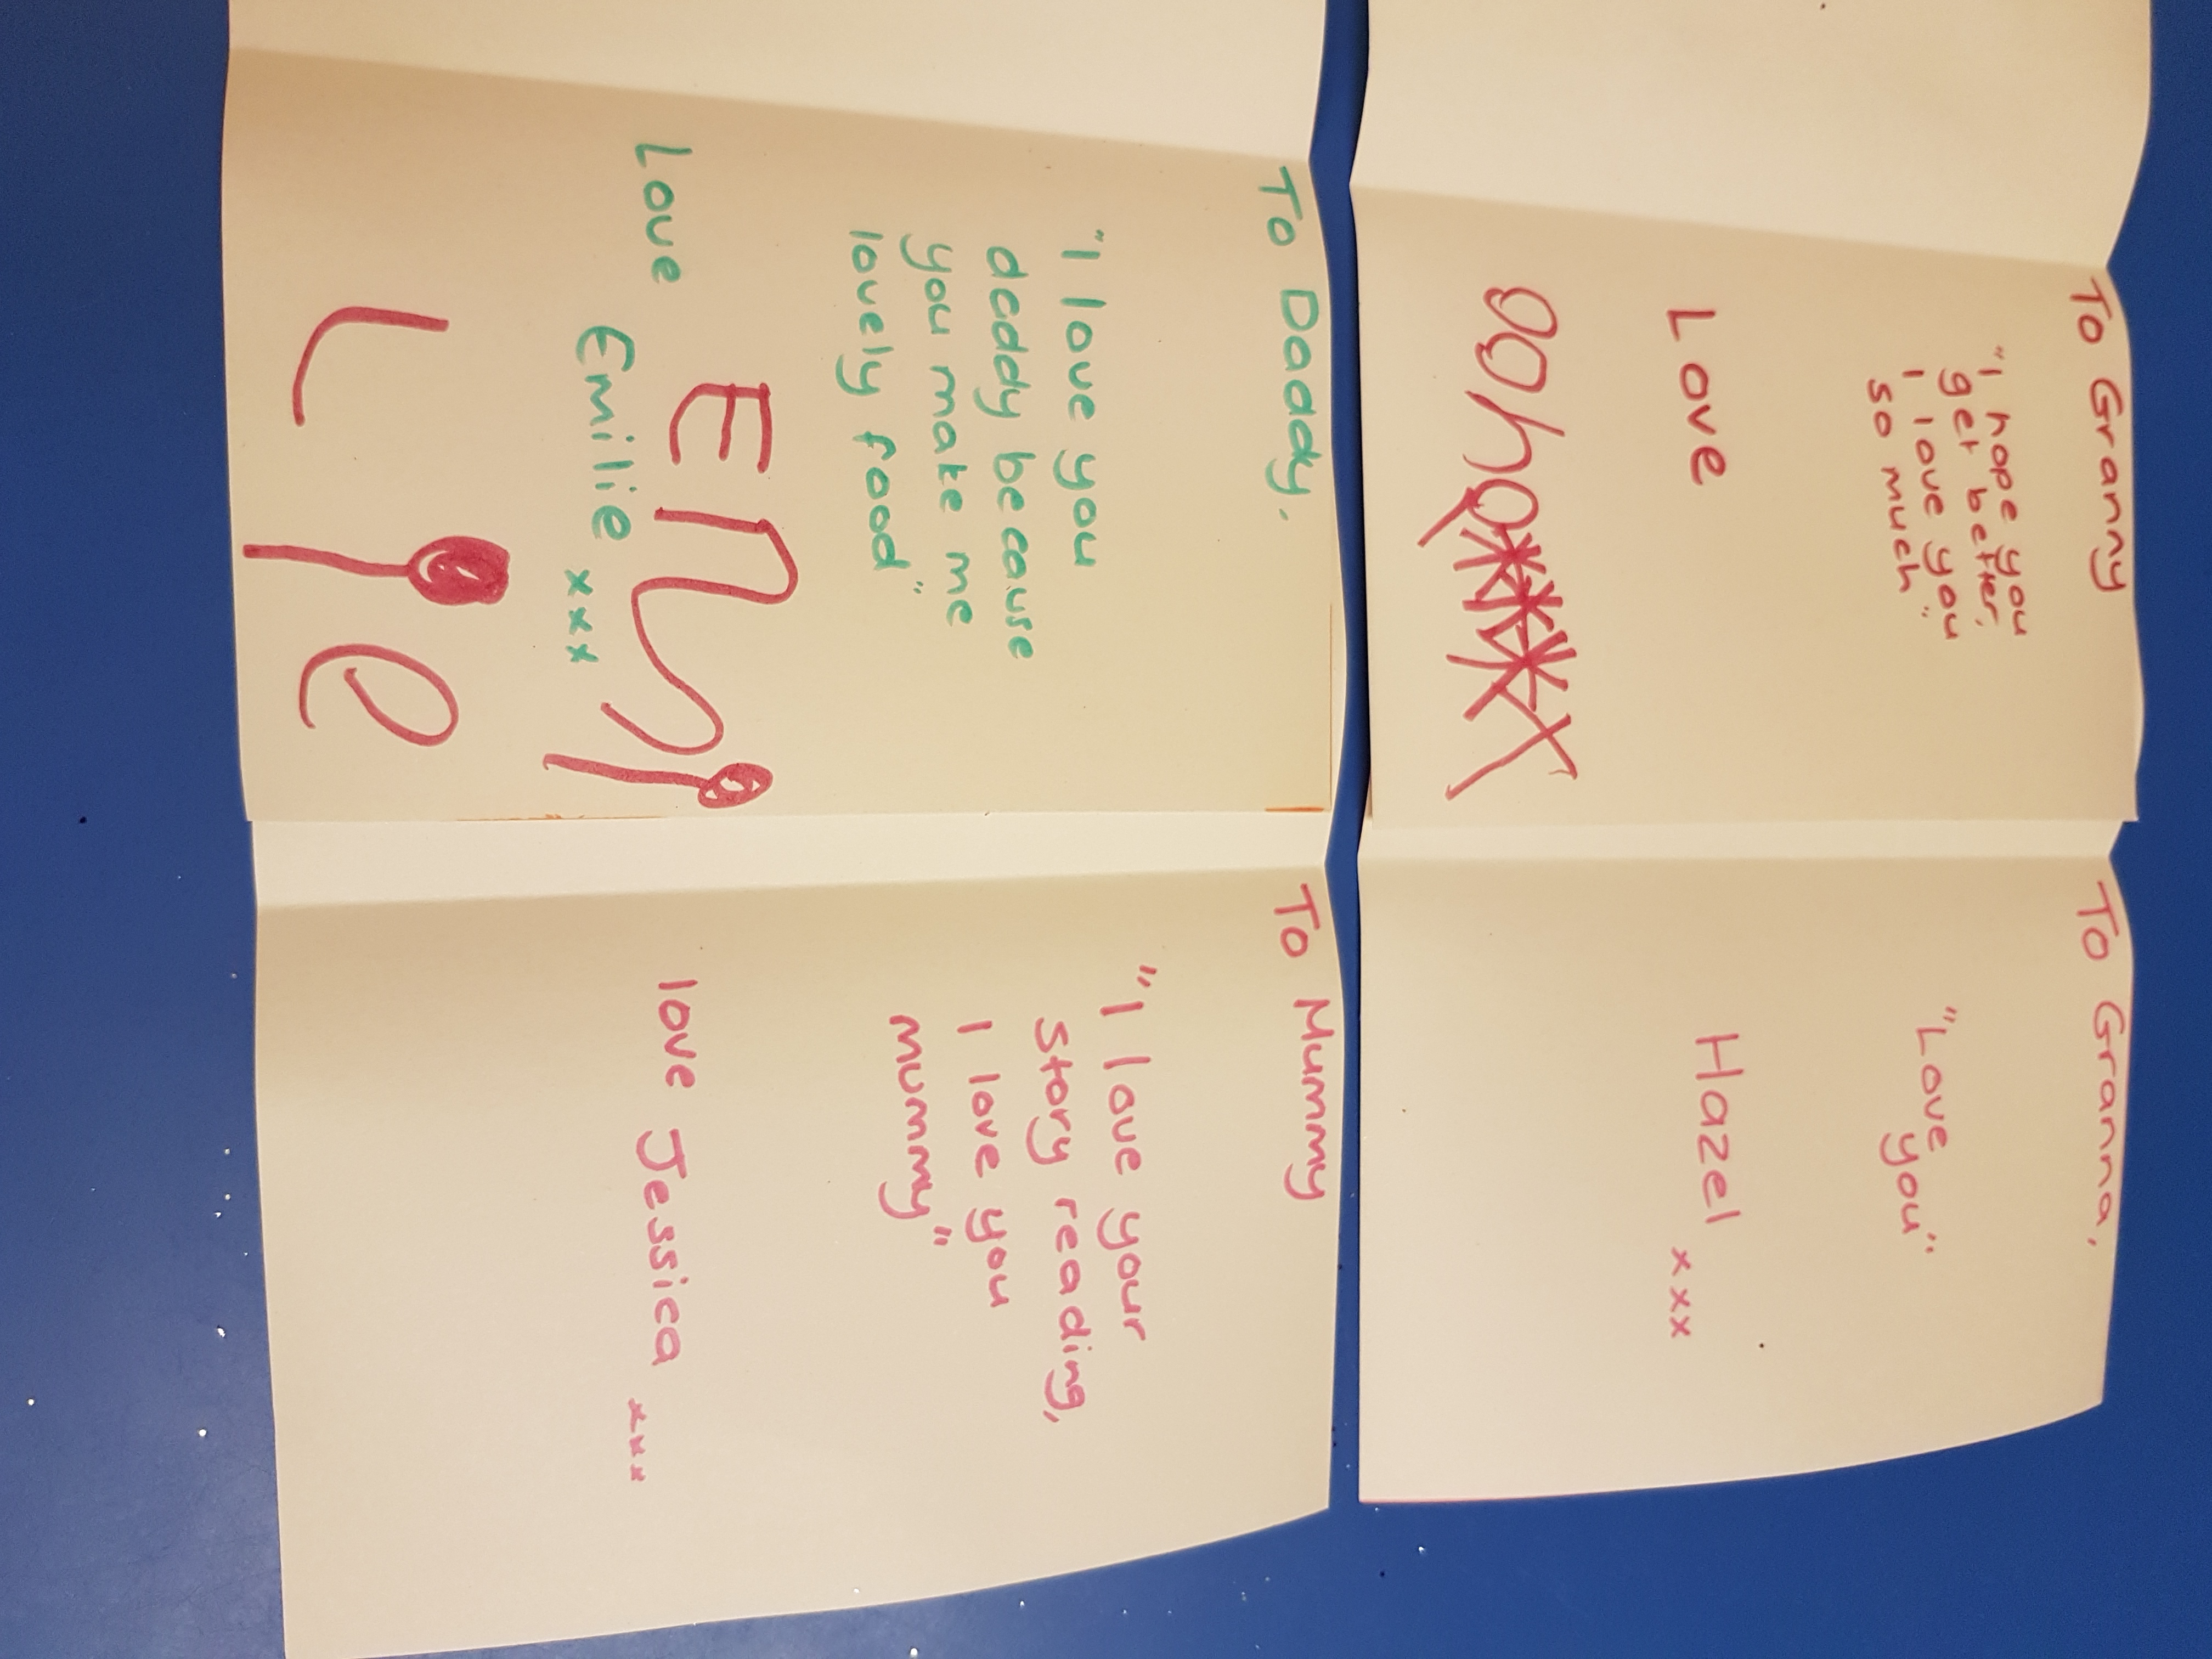 To Granny
"I hope you
get better,
I love you
so much"
Love
To Granna,
"Love
you"
Hazel
xxx
To Daddy,
"I love you
daddy because
you make me
lovely food"
Love
Emilie xxx
Em i
L i e
To Mummy
"I love your
story reading,
I love you
mummy"
love Jessica xxx